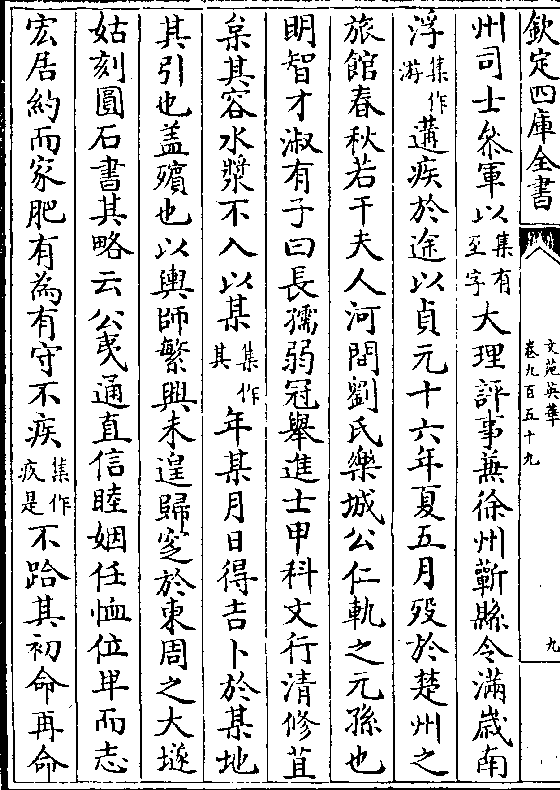 欽定四庫全書
文苑英華
卷九百五十九
九
州司士叅軍以集有至字大理評事兼徐州蘄縣令滿歲南
浮集作游遘疾於途以貞元十六年夏五月歿於楚州之
旅館春秋若干夫人河間劉氏樂城公仁軌之元孫也
明智才淑有子曰長孺弱冠舉進士甲科文行清修苴
枲其容水漿不入以某集作其年某月日得吉卜於某地
其引也蓋殯也以輿師繁興未遑歸窆於東周之大墶
姑刻圓石書其略云公夷通直信睦姻任恤位卑而志
宏居約而家肥有為有守不疾集作疚是不跲其初命再命